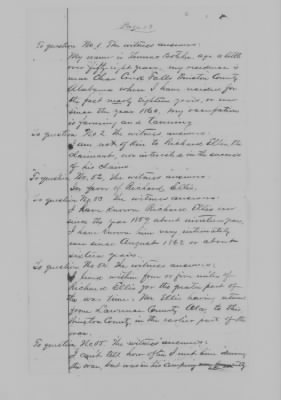 Page 13
To question No. 1 The witness answers:
My name is Thomas age a little
over fifty eight years, my residence is
near Clear Creek Falls Winston County
Alabama where I have resided for
the past nearly eighteen years, or ever
since the year 1860. My occupation
is farming and tanning
To question No 2 The witness answers:
I am not of kin to Richard Ellis the
Claimant, nor interested in the success
of his claim
To question No. 52. The witness answers:
In favor of Richard Ellis.
To question No. 53 The witness answers:
I have known Richard Ellis ever
since the year 1859 about nineteen years
I have known him very intimately
ever since August 1862 or about
sixteen years.
To question No. 54. The witness answers:
I lived within four or five miles of
Richard Ellis for the greater part of
the war time. Mr Ellis having
from Lawrence County Ala, to this
Winston County in the earlier part of the
war.
To question No. 55. The witness answers:
I can't tell how often I met him during
the war but was in his company